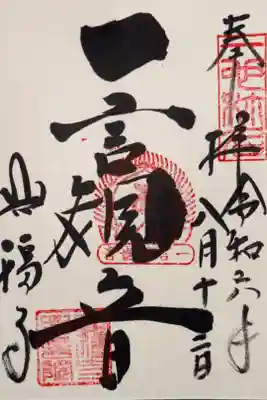 奉拝
令和六年
八月十三日
一言観音
興福寺